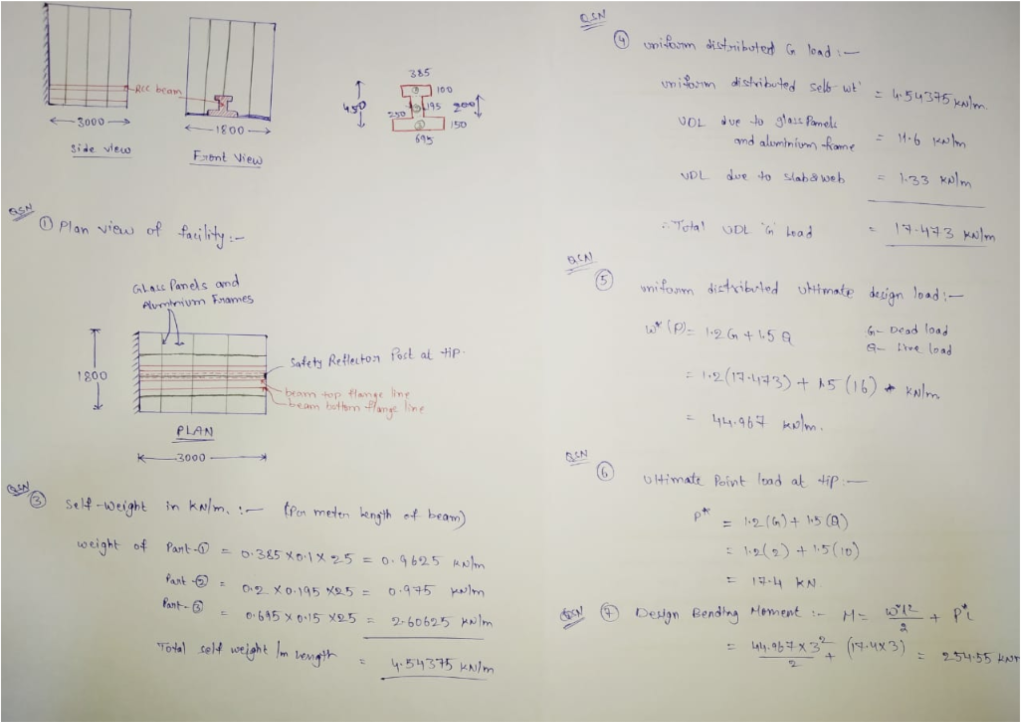 RCC beam
3000
Side view
1800
Front View
385
100
450
250
195
200
150
695
①
②
③
QSN
① Plan view of facility:-
Glass Panels and
Aluminium Frames
1800
Safety Reflector Post at tip.
beam top flange line
beam bottom flange line
PLAN
3000
QSN
③ Self-weight in kN/m. :- (Per meter length of beam)
weight of Part-① = 0.385 × 0.1 × 25 = 0.9625 kN/m
Part-② = 0.2 × 0.195 × 25 = 0.975 kN/m
Part-③ = 0.695 × 0.15 × 25 = 2.60625 kN/m
Total self weight /m length = 4.54375 kN/m
QSN
④ uniform distributed G load :-
uniform distributed self-wt = 4.54375 kN/m.
UDL due to glass Panels
and aluminium frame = 11.6 kN/m
UDL due to slab & web = 1.33 kN/m
∴ Total UDL 'G' Load = 17.473 kN/m
QSN
⑤ uniform distributed ultimate design load :-
W* (P) = 1.2 G + 1.5 Q
G- Dead load
Q- Live load
= 1.2 (17.473) + 1.5 (16) * kN/m
= 44.967 kN/m.
QSN
⑥ Ultimate Point load at tip :-
P* = 1.2 (G) + 1.5 (Q)
= 1.2 (2) + 1.5 (10)
= 17.4 kN.
QSN ⑦ Design Bending Moment :- M = W*l²/2 + P*l
= 44.967 × 3²/2 + (17.4 × 3) = 254.55 kN